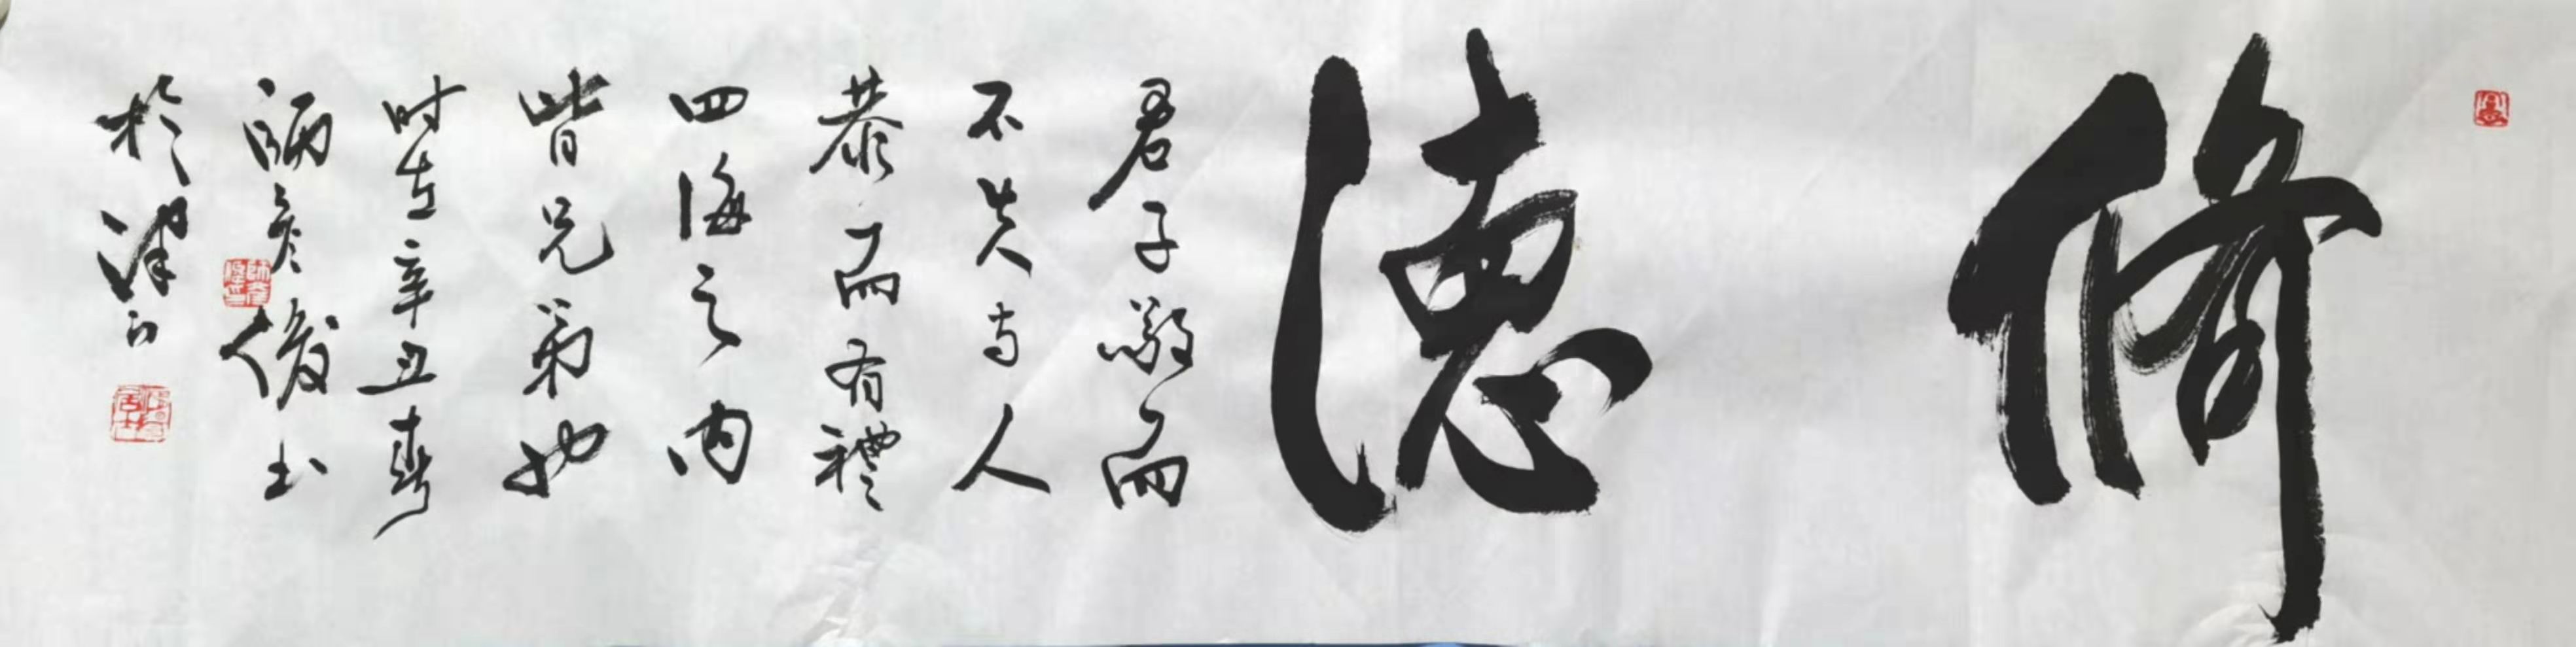 脩德
君子敬而
不失与人
恭而有禮
四海之内
皆兄弟也
时在辛丑春
彦俊书
於津门